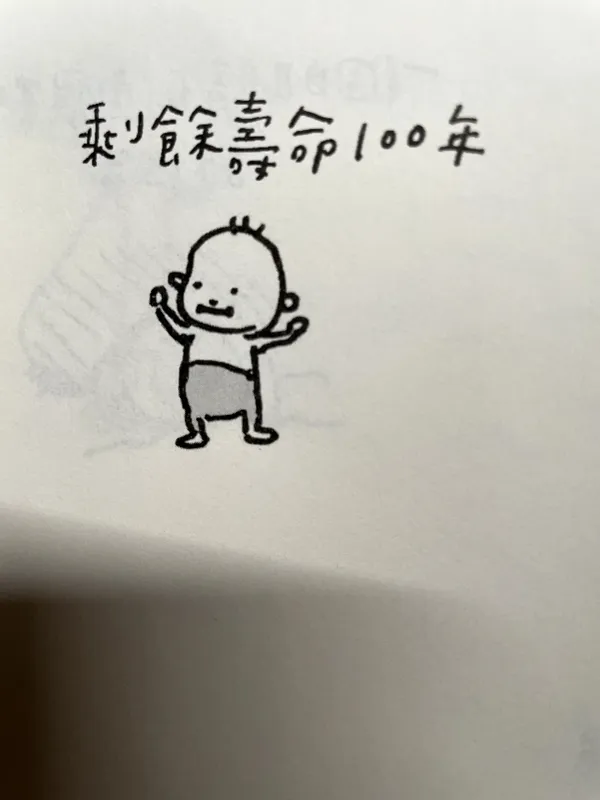 剩餘壽命100年